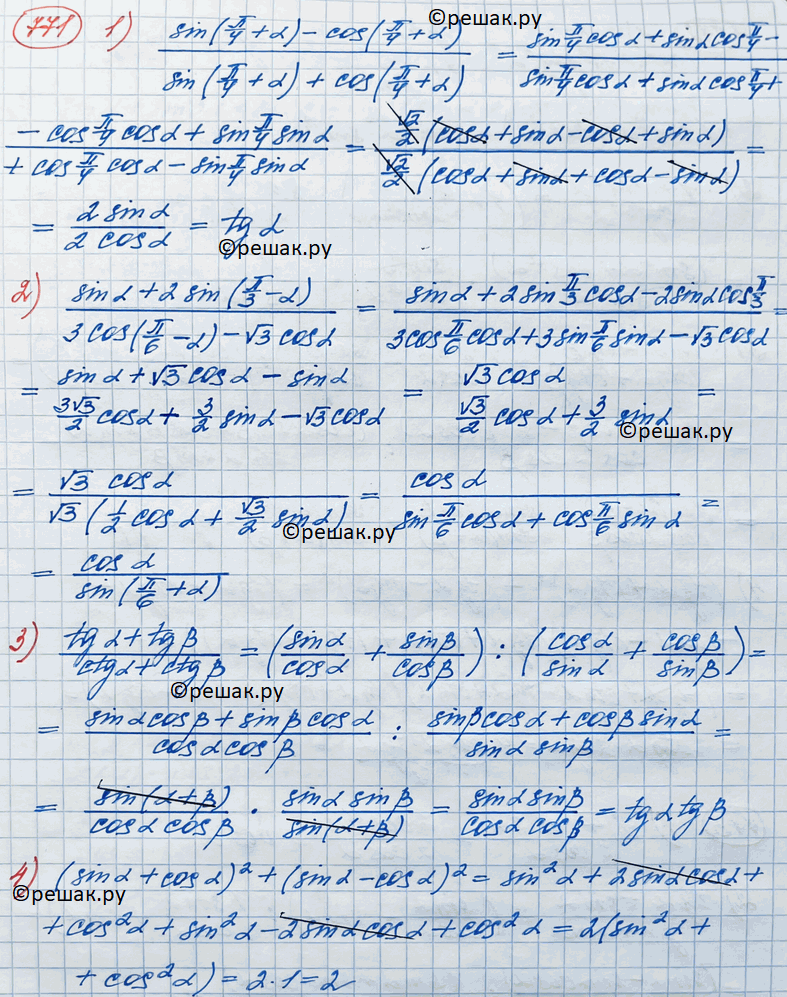 ©решак.ру
771 1) (sin(π/4 + α) − cos(π/4 + α)) / (sin(π/4 + α) + cos(π/4 + α)) = (sin π/4 cos α + sin α cos π/4 −) / (sin π/4 cos α + sin α cos π/4 +)
(− cos π/4 cos α + sin π/4 sin α) / (+ cos π/4 cos α − sin π/4 sin α) = (√2/2 (cos α + sin α − cos α + sin α)) / (√2/2 (cos α + sin α + cos α − sin α)) =
= (2 sin α) / (2 cos α) = tg α
©решак.ру
2) (sin α + 2 sin(π/3 − α)) / (3 cos(π/6 − α) − √3 cos α) = (sin α + 2 sin π/3 cos α − 2 sin α cos π/3) / (3 cos π/6 cos α + 3 sin π/6 sin α − √3 cos α) =
= (sin α + √3 cos α − sin α) / (3√3/2 cos α + 3/2 sin α − √3 cos α) = (√3 cos α) / (√3/2 cos α + 3/2 sin α) =
©решак.ру
= (√3 cos α) / (√3 (1/2 cos α + √3/2 sin α)) = (cos α) / (sin π/6 cos α + cos π/6 sin α) =
©решак.ру
= (cos α) / (sin(π/6 + α))
3) (tg α + tg β) / (ctg α + ctg β) = (sin α / cos α + sin β / cos β) : (cos α / sin α + cos β / sin β) =
©решак.ру
= (sin α cos β + sin β cos α) / (cos α cos β) : (sin β cos α + cos β sin α) / (sin α sin β) =
= (sin(α + β)) / (cos α cos β) · (sin α sin β) / (sin(α + β)) = (sin α sin β) / (cos α cos β) = tg α tg β
4) (sin α + cos α)² + (sin α − cos α)² = sin² α + 2 sin α cos α +
©решак.ру
+ cos² α + sin² α − 2 sin α cos α + cos² α = 2(sin² α +
+ cos² α) = 2 · 1 = 2
©решак.ру